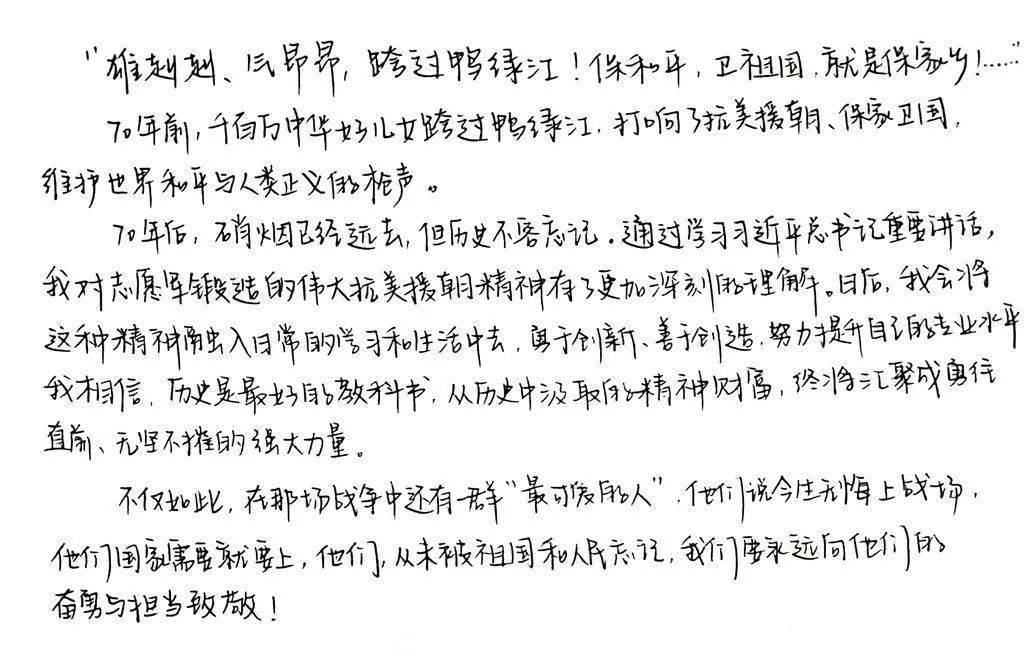 “雄赳赳、气昂昂，跨过鸭绿江！保和平，卫祖国，就是保家乡！……”
70年前，千百万中华好儿女跨过鸭绿江，打响了抗美援朝、保家卫国，
维护世界和平与人类正义的枪声。
70年后，硝烟已经远去，但历史不容忘记。通过学习习近平总书记重要讲话，
我对志愿军锻造的伟大抗美援朝精神有了更加深刻的理解。日后，我会将
这种精神融入日常的学习和生活中去，勇于创新、善于创造，努力提升自己的专业水平
我相信，历史是最好的教科书，从历史中汲取的精神财富，终将汇聚成勇往
直前、无坚不摧的强大力量。
不仅如此，在那场战争中还有一群“最可爱的人”，他们说今生无悔上战场，
他们国家需要就要上，他们，从未被祖国和人民忘记，我们要永远向他们的
奋勇与担当致敬！